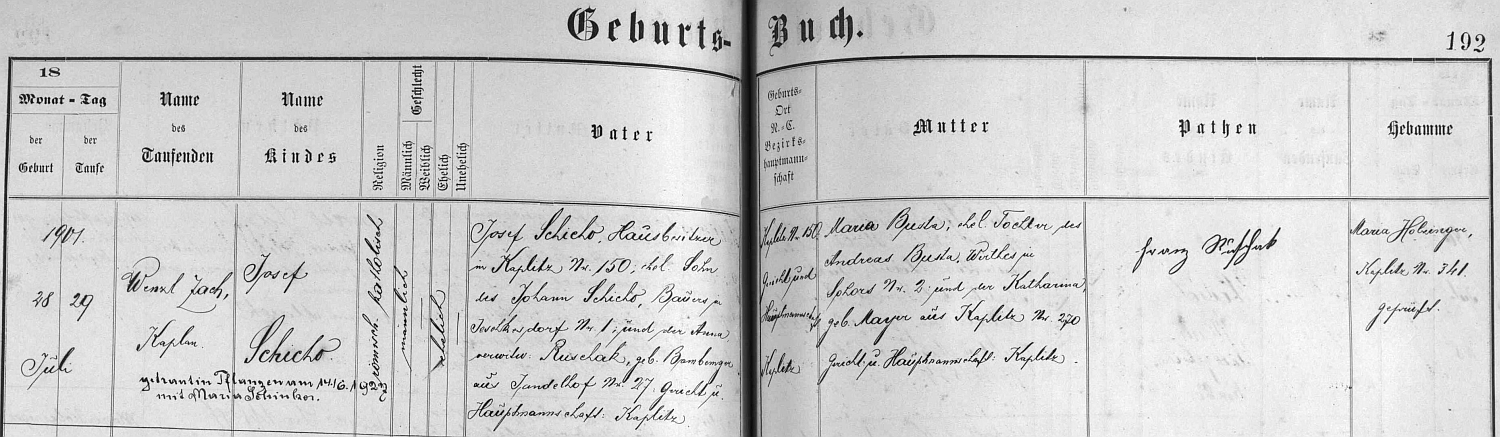 Geburts-Buch.
192
18
Monat - Tag
der Geburt
der Taufe
Name des Taufenden
Name des Kindes
Religion
Geschlecht
Männlich
Weiblich
Ehelich
Unehelich
Vater
Geburts-
Ort
N.-C.
Bezirks-
hauptmann-
schaft
Mutter
Pathen
Hebamme
1901.
28 29
Juli
Wenzl Zach,
Kaplan.
Josef
Schicho
getraut in Pfangen am 14./6. 1923
mit Maria
römisch. katholisch
männlich
ehelich
Josef Schicho, Hausbesitzer
in Kaplitz Nr. 150; ehel. Sohn
des Johann Schicho, Bauers in
Jeschkesdorf Nr. 1; und der Anna
verwitw. Ruschak, geb. Bamberger
aus Jandelhof Nr. 27. Gericht u.
Hauptmannschaft: Kaplitz
Kaplitz N. 150.
Gericht und
Hauptmannschaft
Kaplitz
Maria Busta, ehel. Tochter des
Andreas Busta, Wirthes in
Sohors Nr. 2; und der Katharina,
geb. Mayer aus Kaplitz Nr. 270
Gericht u. Hauptmannschaft: Kaplitz.
Franz
Maria
Kaplitz Nr. 341.
geprüft.